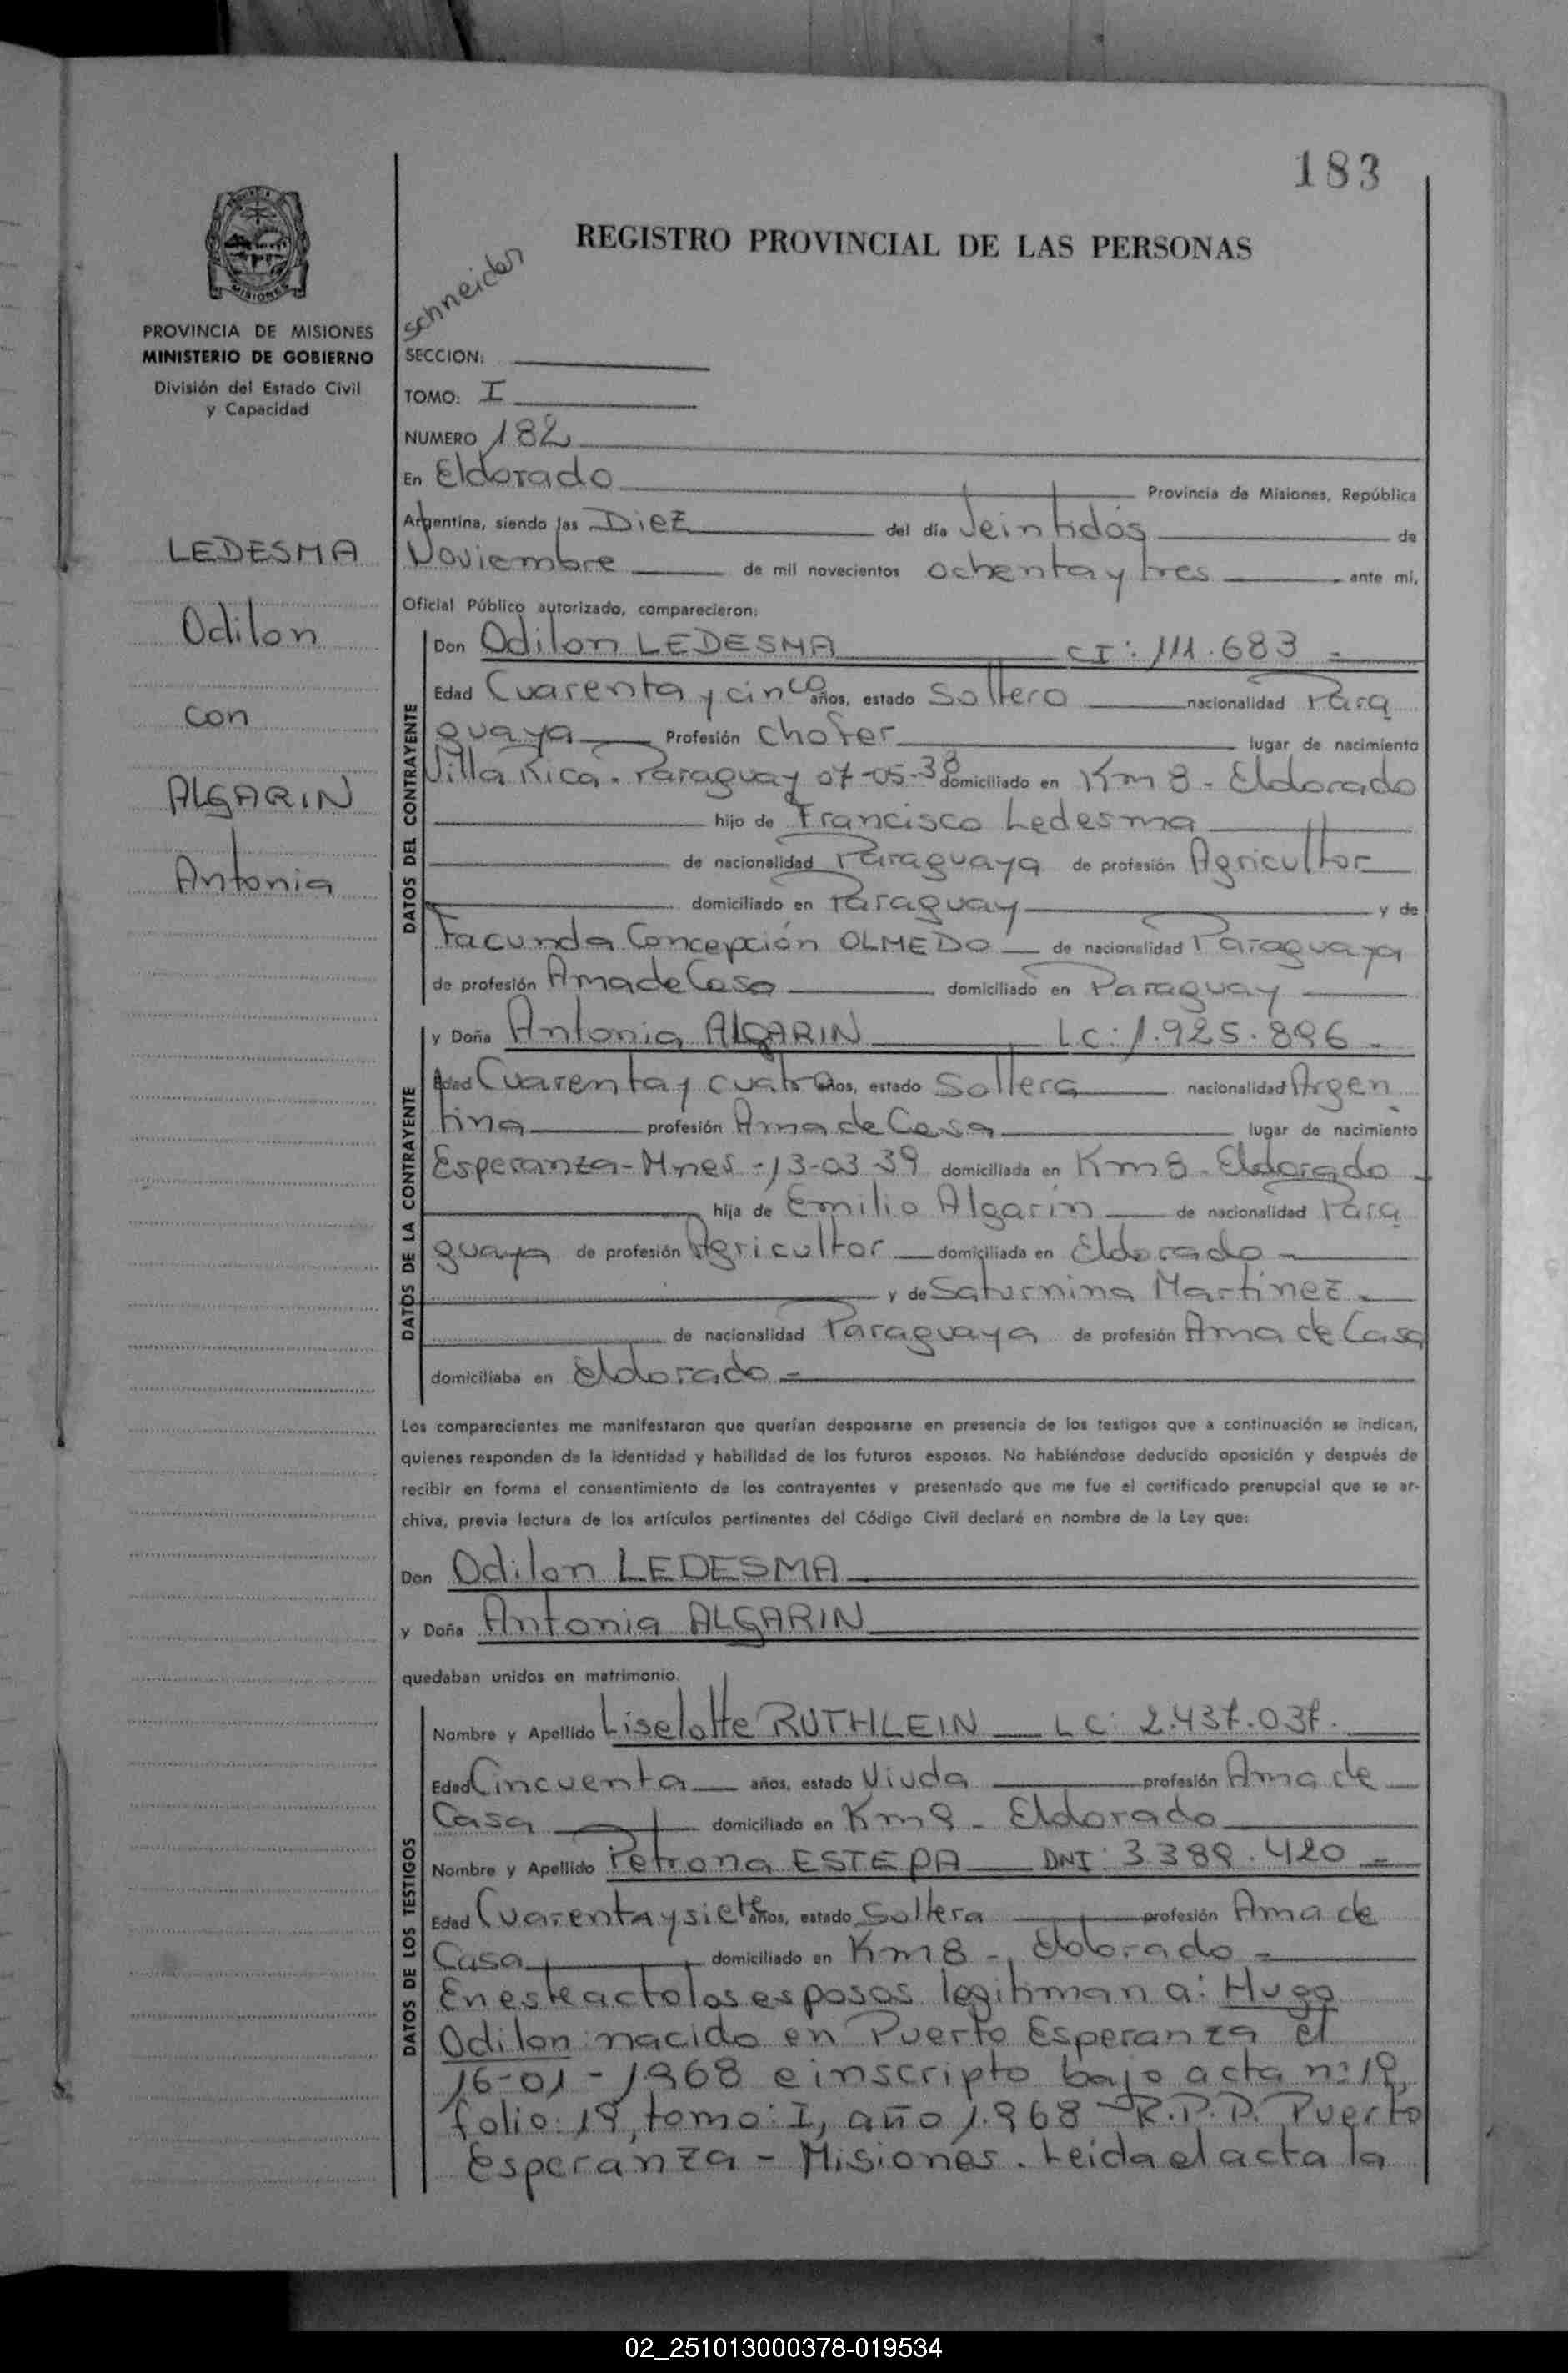 183
REGISTRO PROVINCIAL DE LAS PERSONAS
MISIONES
PROVINCIA DE MISIONES
MINISTERIO DE GOBIERNO
División del Estado Civil
y Capacidad
LEDESMA
Odilon
con
ALGARIN
Antonia
Schneider
SECCION:
TOMO: I
NUMERO 182
En Eldorado Provincia de Misiones, República
Argentina, siendo las Diez del día Veintidós de
Noviembre de mil novecientos ochenta y tres ante mi,
Oficial Público autorizado, comparecieron:
DATOS DEL CONTRAYENTE
Don Odilon LEDESMA CI: 111.683 -
Edad Cuarenta y cinco años, estado Soltero nacionalidad Para
guaya Profesión Chofer lugar de nacimiento
Villa Rica - Paraguay 07-05-38 domiciliado en Km 8 - Eldorado
hijo de Francisco Ledesma
de nacionalidad Paraguaya de profesión Agricultor
domiciliado en Paraguay y de
Facunda Concepción OLMEDO de nacionalidad Paraguaya
de profesión Ama de Casa domiciliado en Paraguay
DATOS DE LA CONTRAYENTE
y Doña Antonia ALGARIN LC: 1.925.896 -
Edad Cuarenta y cuatro años, estado Soltera nacionalidad Argen
tina profesión Ama de Casa lugar de nacimiento
Esperanza - Mnes - 13-03-39 domiciliada en Km 8 - Eldorado -
hija de Emilio Algarin de nacionalidad Para
guaya de profesión Agricultor domiciliada en Eldorado
y de Saturnina Martinez
de nacionalidad Paraguaya de profesión Ama de Casa
domiciliaba en Eldorado -
Los comparecientes me manifestaron que querían desposarse en presencia de los testigos que a continuación se indican,
quienes responden de la identidad y habilidad de los futuros esposos. No habiéndose deducido oposición y después de
recibir en forma el consentimiento de los contrayentes y presentado que me fue el certificado prenupcial que se ar-
chiva, previa lectura de los artículos pertinentes del Código Civil declaré en nombre de la Ley que:
Don Odilon LEDESMA
y Doña Antonia ALGARIN
quedaban unidos en matrimonio.
DATOS DE LOS TESTIGOS
Nombre y Apellido Liselotte RUTHLEIN LC: 2.437.037.
Edad Cincuenta años, estado Viuda profesión Ama de
Casa domiciliado en Km 9 - Eldorado
Nombre y Apellido Petrona ESTEPA DNI: 3.389.420 -
Edad Cuarenta y siete años, estado Soltera profesión Ama de
Casa domiciliado en Km 8 - Eldorado -
En este acto los esposos legitiman a: Hugo
Odilon nacido en Puerto Esperanza el
16-01-1968 e inscripto bajo acta nº 19,
folio: 19, tomo: I, año 1.968 - R.P.P. Puerto
Esperanza - Misiones. Leida el acta la
02_251013000378-019534